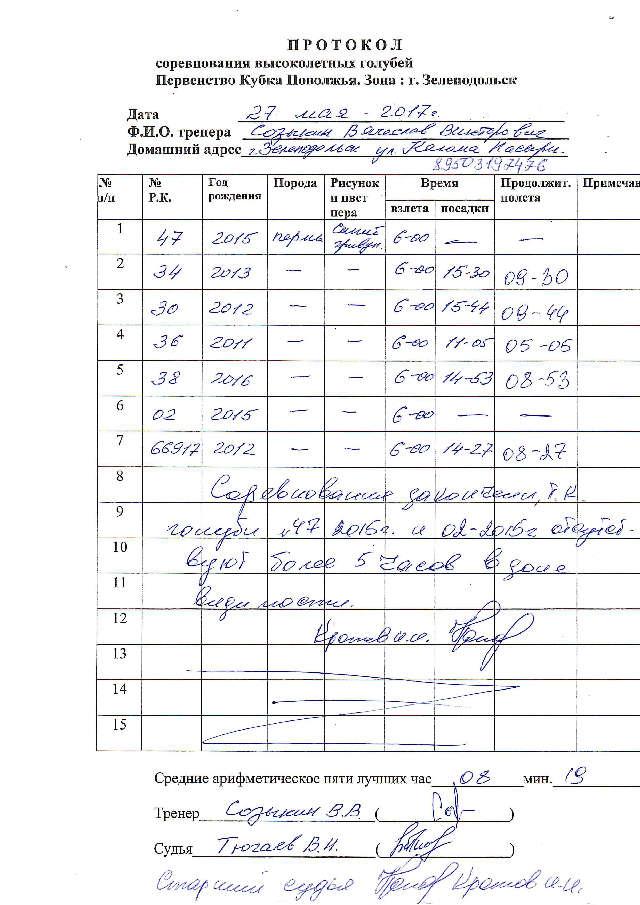 П Р О Т О К О Л
соревнования высоколетных голубей
Первенство Кубка Поволжья. Зона : г. Зеленодольск
Дата 27 мая - 2017г.
Ф.И.О. тренера Созыкин Вячеслав Викторович
Домашний адрес г. Зеленодольск ул.
89503197476
№ п/п № Р.К. Год рождения Порода Рисунок и цвет пера Время взлета посадки Продолжит. полета Примечан
1 47 2015 пермь Синий гривун. 6-00 — —
2 34 2013 — — 6-00 15-30 09-30
3 30 2012 — — 6-00 15-44 09-44
4 36 2011 — — 6-00 11-05 05-05
5 38 2016 — — 6-00 14-53 08-53
6 02 2015 — — 6-00 — —
7 66917 2012 — — 6-00 14-27 08-27
8 Соревнования закончены, т.к.
9 голуби "47 2015г. и 02-2015г отсутст-
10 вуют более 5 часов в зоне
11 видимости.
12 Кротов и.и.
13
14
15
Средние арифметическое пяти лучших час 08 мин. 19
Тренер Созыкин В.В. ( )
Судья Тюгаев В.И. ( )
Старший судья Кротов и.и.